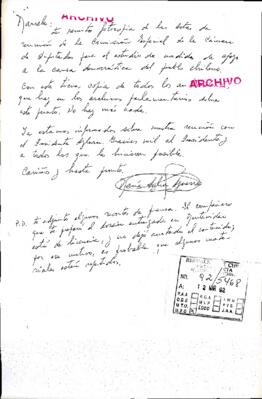 ARCHIVO
Marcelo:
te remito fotocopia de las actas de
reunión de la Comisión Especial de la Cámara
de Diputados para el estudio de medidas de apoyo
a la causa democrática del pueblo chileno.
Con esto tienes copia de todos los
ARCHIVO
que hay en los archivos parlamentarios sobre
este punto. No hay más nada.
Ya estamos informados sobre nuestra reunión con
el Presidente Aylwin. Gracias mil al Presidente y
a todos los que la hicieron posible.
Cariños y hasta pronto.
P.D. te adjunto algunos recortes de prensa. El compañero
que te preparó el dossier entregado en Montevideo
está de licencia, y no dejó anotado el contenido;
por ese motivo, es probable que algunos mate-
riales estén repetidos.
92/5468
A: 12 MAR 92